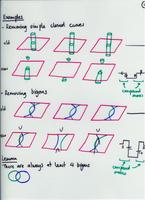 Examples
- Removing simple closed curves
old
new
compound moves
- Removing bigons
old
new
compound moves
Lemma
There are always at least 4 bigons